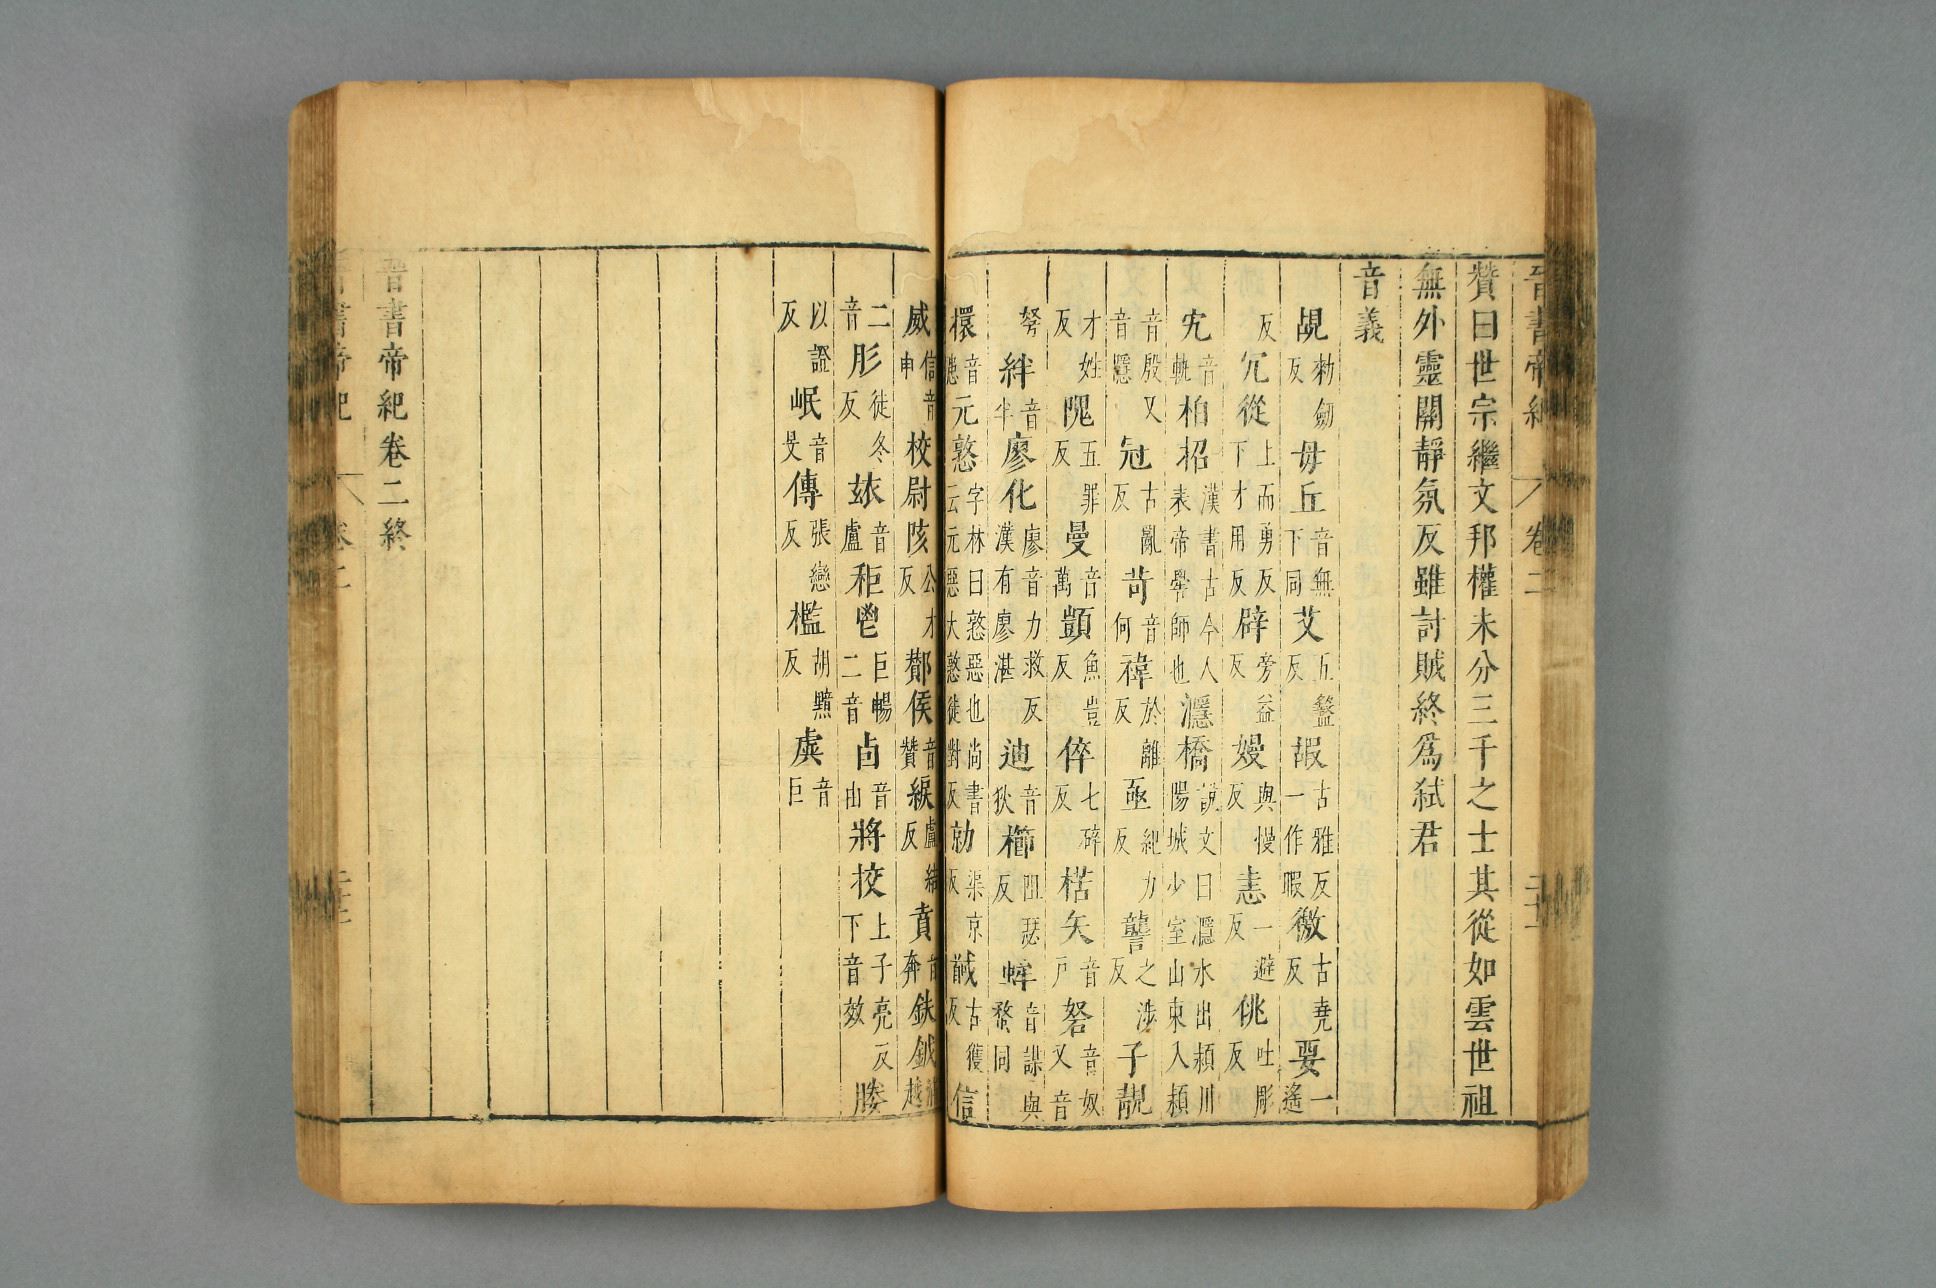 晉書帝紀 卷二
贊曰世宗繼文邦權未分三千之士其從如雲世祖
無外靈關靜氛反雖討賊終爲弑君
音義
覘勑劒反毋丘音無下同艾五反嘏古雅反一作暇徼古堯反要一遙
反冗從上而勇反下才用反辟旁益反嫚與慢反恚一避反佻吐彫反
宄音軌柏招漢書古今人表帝嚳師也㶏橋說文曰㶏水出潁川陽城少室山東入潁
音殷又音隱冠古亂反苛音何禕於離反亟紀力反讋之涉反子靚
才姓反隗五罪反曼音萬顗魚豈反倅七碎反楛矢音戶砮音奴又音
弩絆音半廖化廖音力救反漢有廖湛迪音狄櫛阻瑟反蛑音謀與蝥同
擐音患元憝字林曰憝惡也尚書云元惡大憝徒對反勍渠京反馘古獲反信
威信音申校尉陔公才反酇侯音贊綟盧結反賁音奔鈇鉞越
二音彤徒冬反玈音盧秬鬯巨暢二音卣音由將校上子亮反下音效媵
以證反岷音旻傳張戀反檻胡黤反虡音巨
晉書帝紀卷二終
晉書帝紀 卷二